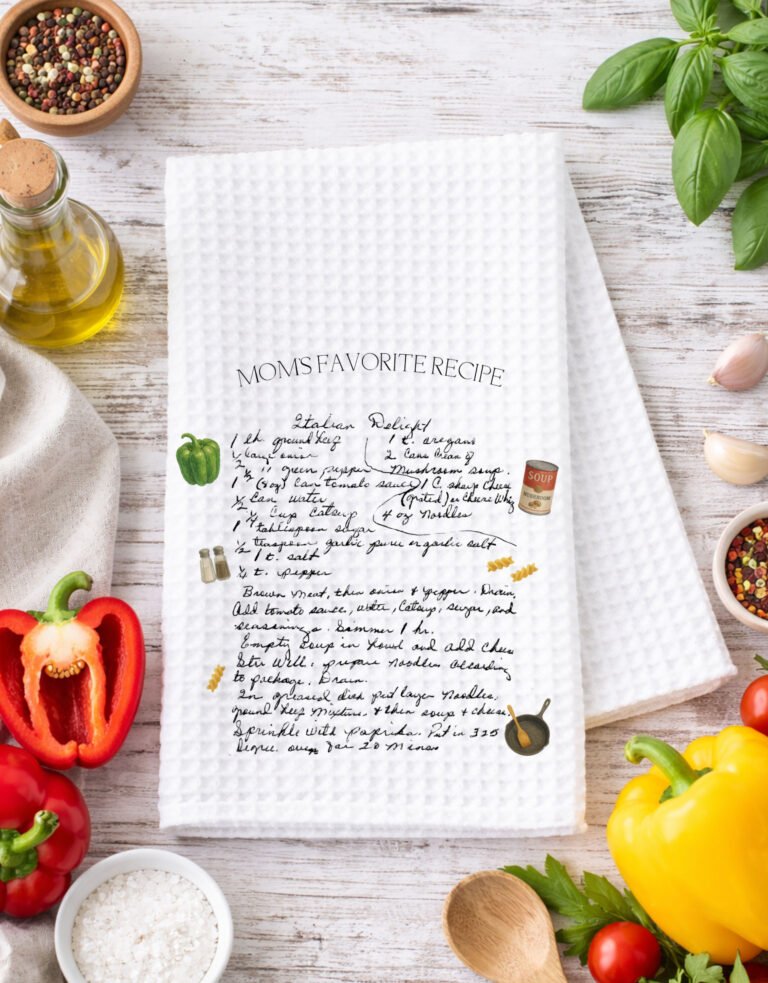 MOM'S FAVORITE RECIPE
Italian Delight
1 lb. ground beef
1 large onion
1/2 green pepper
1 (8oz) can tomato sauce
1/2 can water
1/4 cup catsup
1 tablespoon sugar
1/2 teaspoon garlic puree or garlic salt
1 t. salt
1/4 t. pepper
1 t. oregano
2 cans cream of
mushroom soup.
1 C. sharp cheese
(grated) or cheese whiz
4 oz noodles
SOUP
MUSHROOM
Brown meat, then onion & pepper. Drain,
Add tomato sauce, water, catsup, sugar, and
seasonings. Simmer 1 hr.
Empty soup in bowl and add cheese
Stir well. prepare noodles according
to package. Drain.
In greased dish put layer noodles,
ground beef mixture & then soup & cheese.
Sprinkle with paprika. Put in 325
degree oven for 20 mins